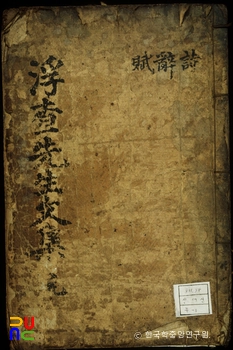 詩辭賦
浮查先生文集 元
© 한국학중앙연구원